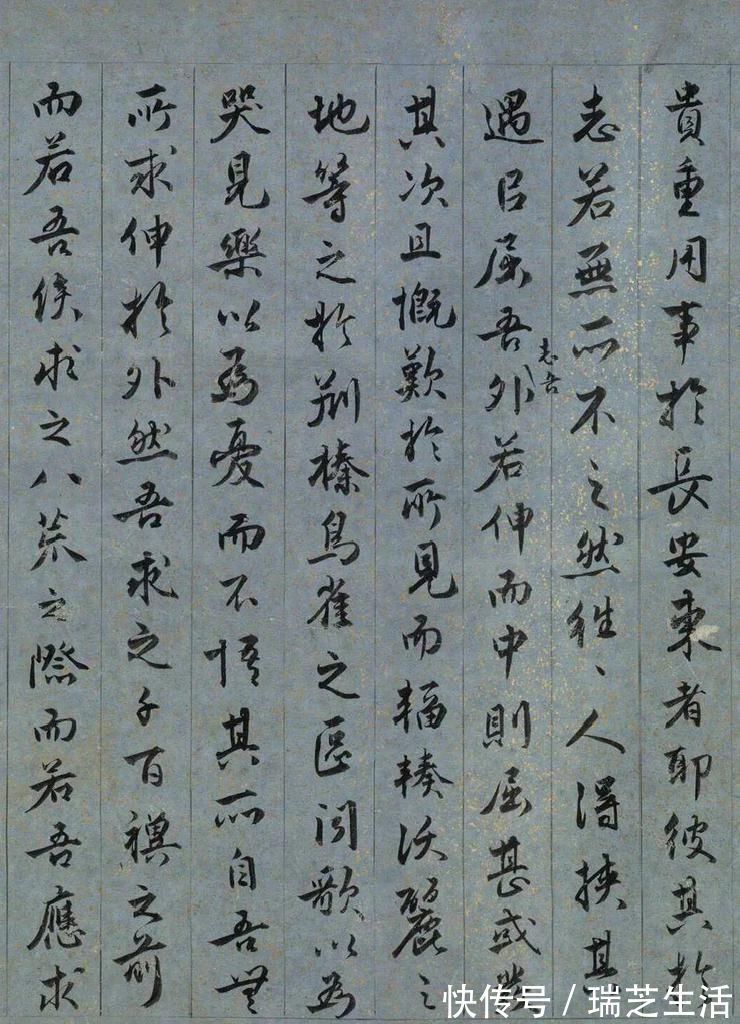 貴重用事於長安東者耶彼其於
志若無所不之然往、人得挾其
遇以屈吾志吾外若伸而中則屈甚或當
其次且慨歎於所見而輻輳沃麗之
地等之於荊榛鳥雀之區聞歌以為
哭見樂以為憂而不悟其所自吾無
所求伸於外然吾求之千百禩之前
而若吾俟求之八荒之際而若吾應求
快传号/瑞芝生活